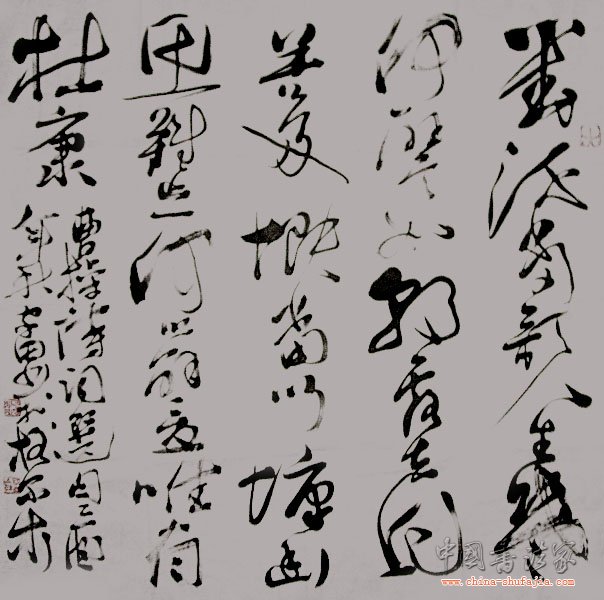 對酒當歌人生幾
何譬如朝露去日
苦多慨當以慷幽
思難忘何以解憂唯有
杜康
曹操詩詞選句
中國書法家
www.china-shufajia.com